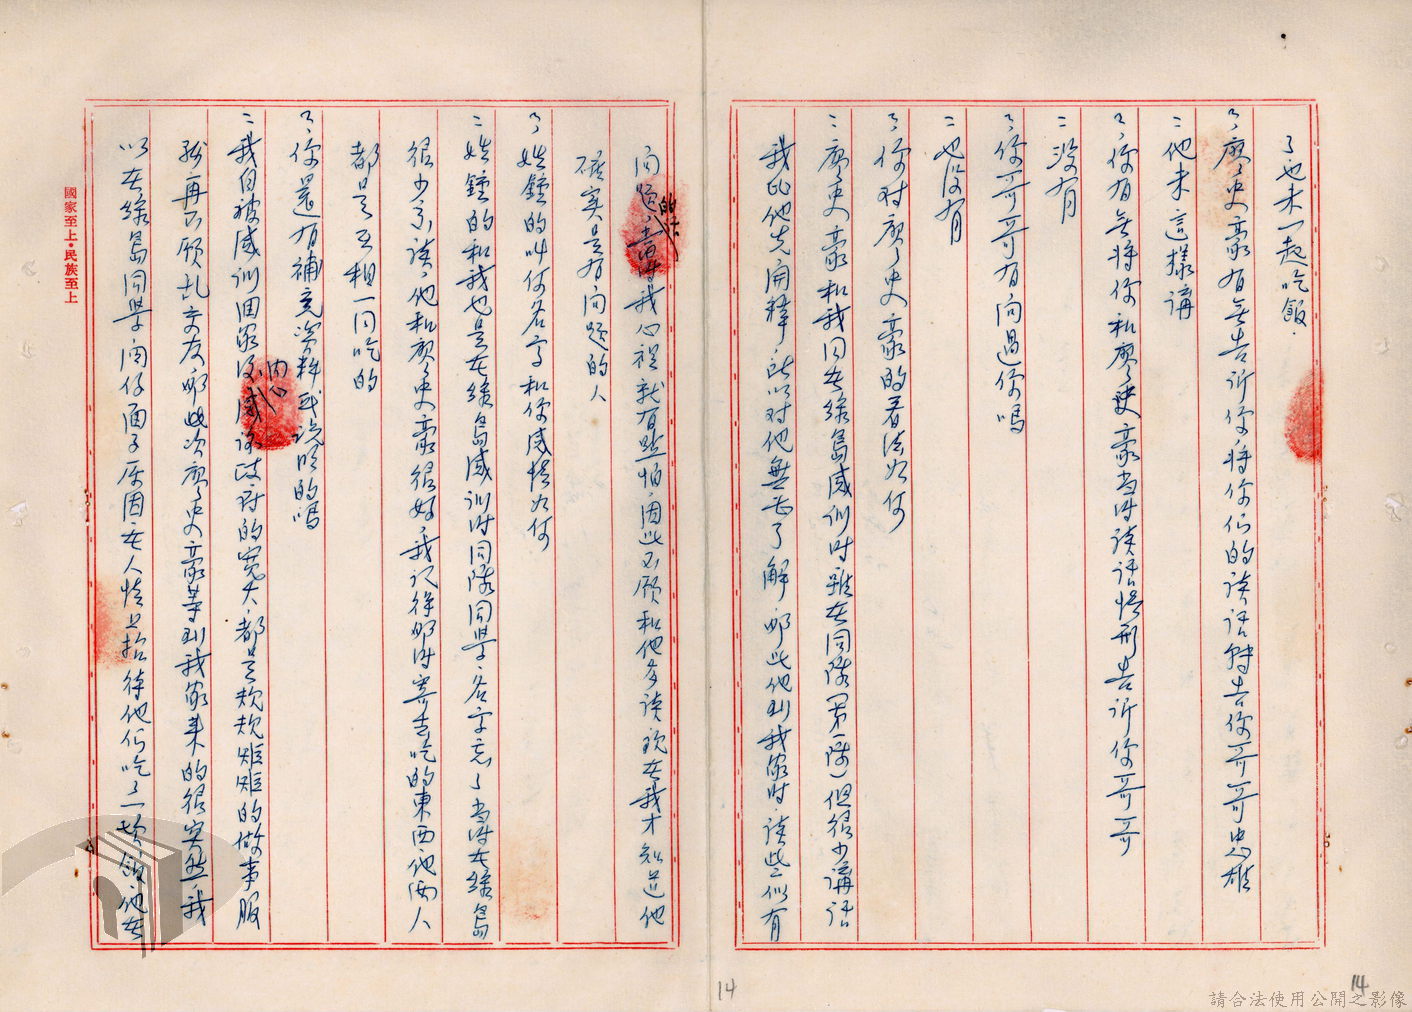 了也未一起吃飯.
？廖史豪有無告訴你將你们的谈话轉告你哥哥忠雄
：他未這樣講
？你有無將你和廖史豪当时谈话情形告訴你哥哥
：沒有
？你哥哥有向過你嗎
：也沒有
？你对廖史豪的看法如何
：廖史豪和我同在綠島感训时雖在同隊(第一隊)但很少講话
我比他先開釋,所以对他無甚了解,那此他到我家时,谈些似有
问题的话當时我心裡就有點怕,因此不願和他多谈现在我才知道他
確实是有问题的人
？姓鍾的叫何名字和你感情如何
：姓鍾的和我也是在綠島感训时同隊同學,名字忘了当时在綠島
很少交谈,他和廖史豪很好,我记得那时寄去吃的東西他両人
都是互相一同吃的
？你還有補充資料或说明的嗎
：我自被感训回家後内心感謝政府的寛大,都是规规矩矩的做事服
務再不願乱交友,那此次廖史豪等到我家来的很突然,我
以在綠島同學関係面子原因在人情上招待他们吃了一頓飯,他在
國家至上•民族至上
14
14
請合法使用公開之影像